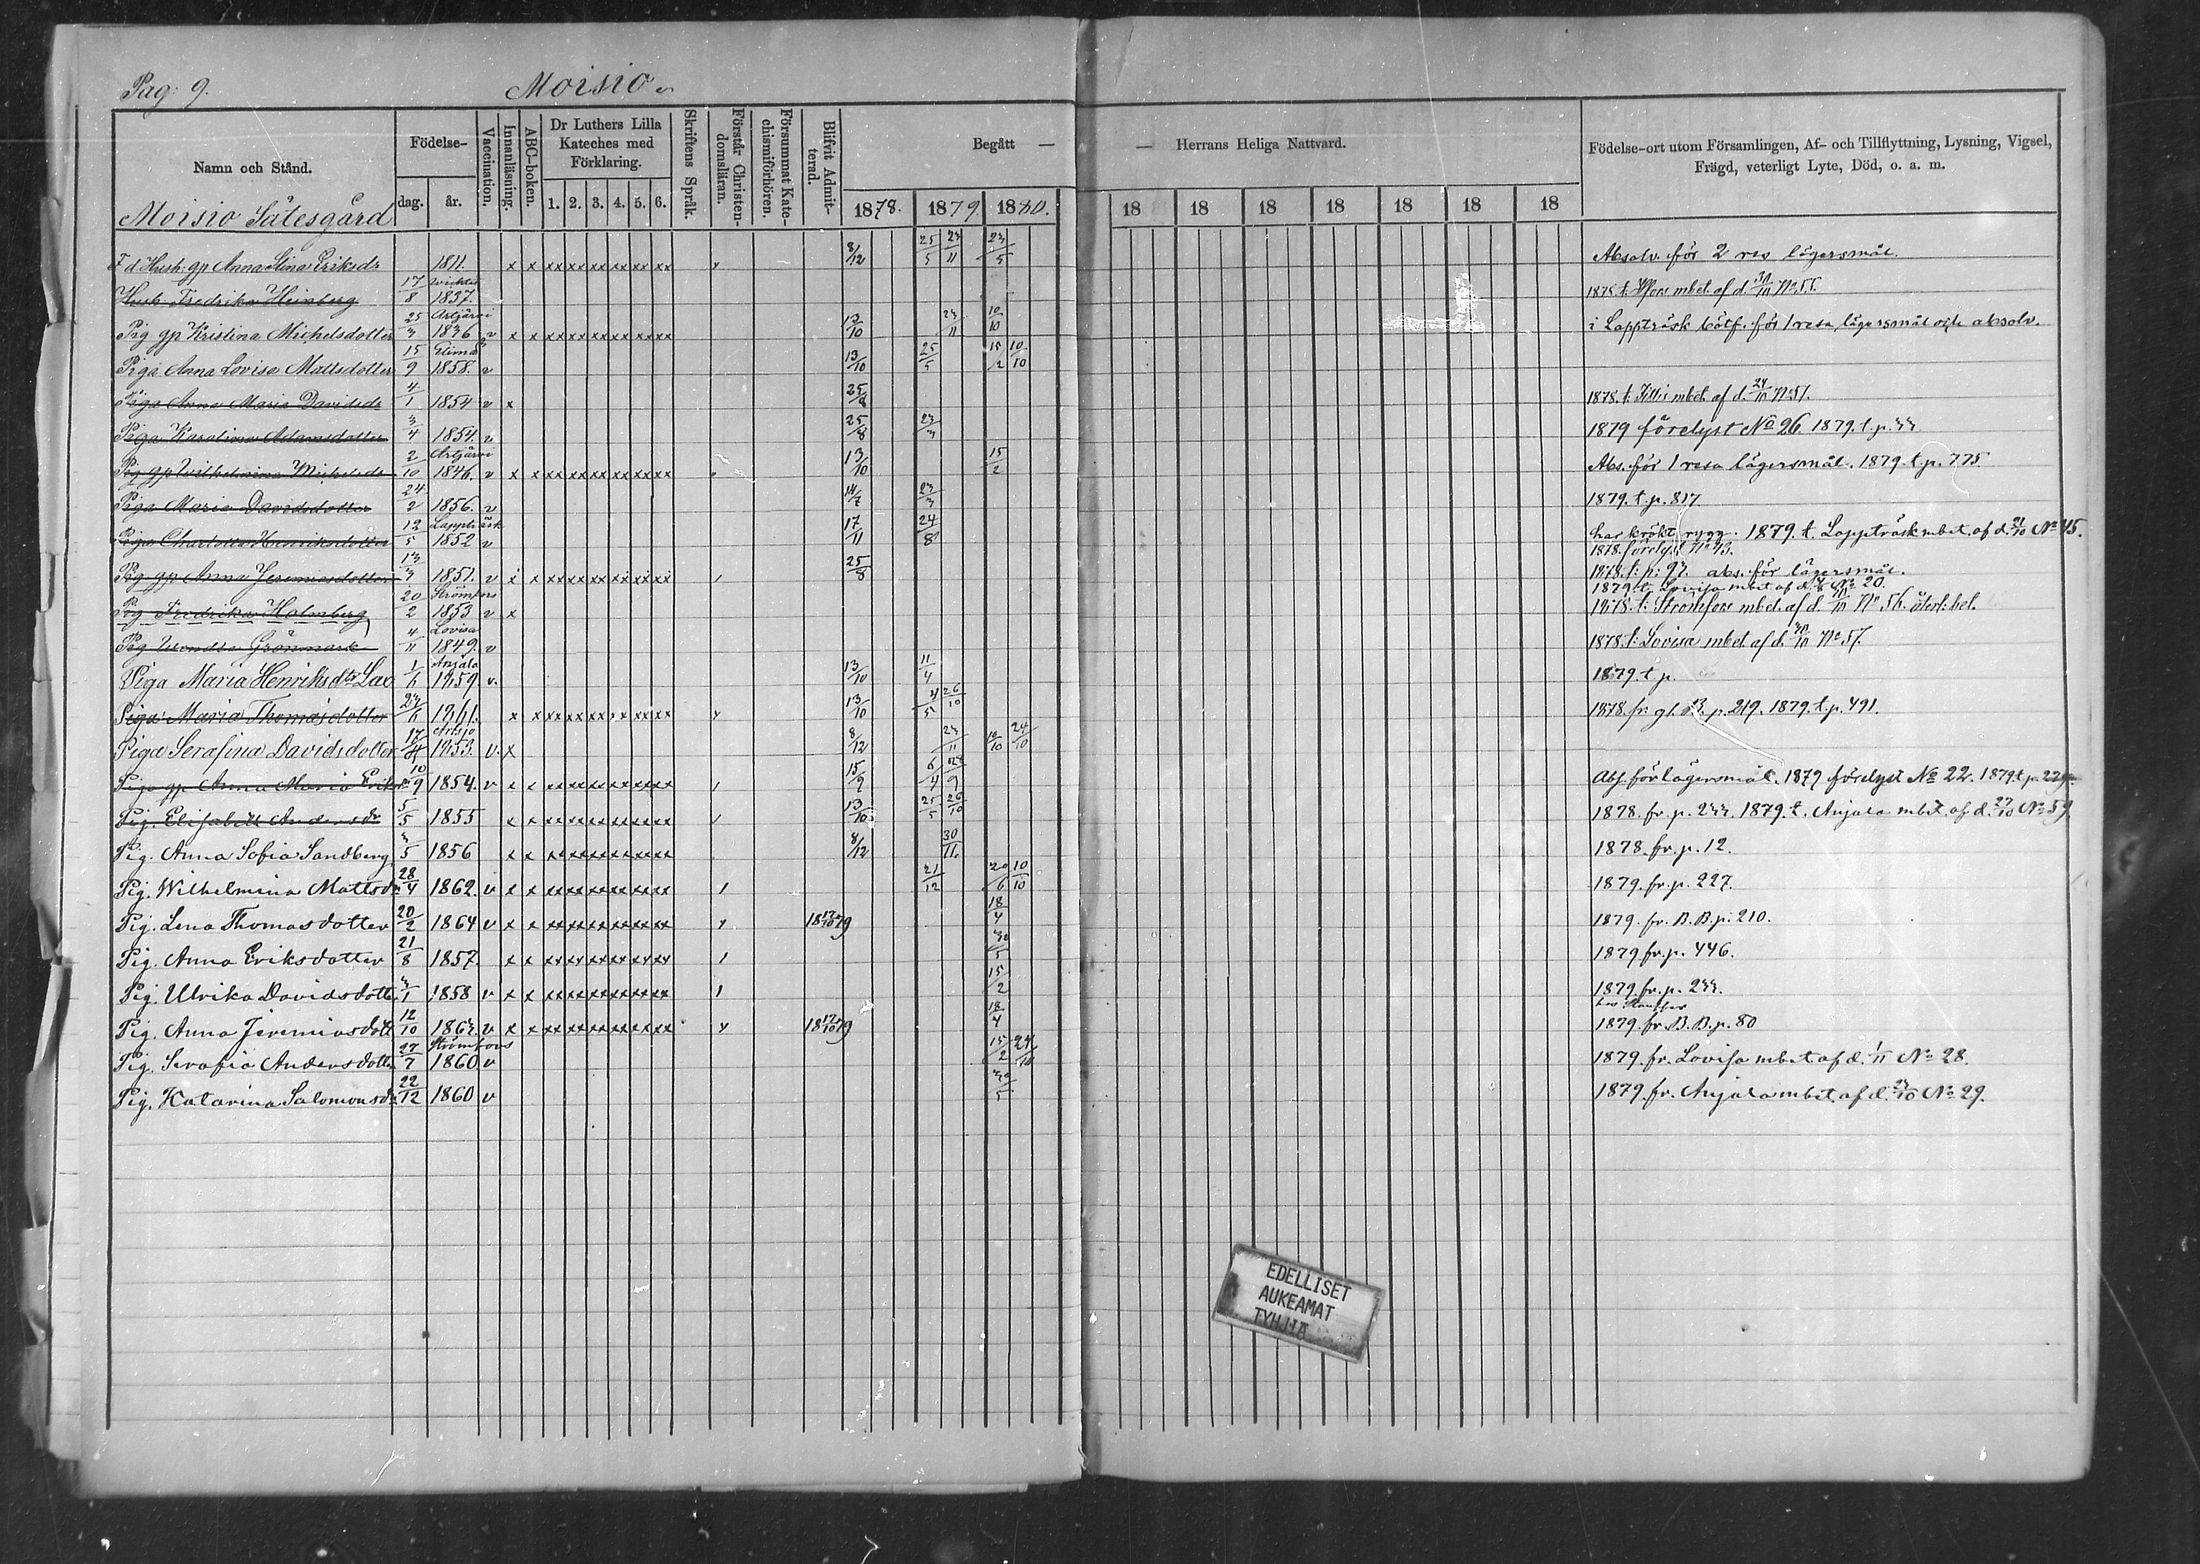 Pag: 9. Moisio
Namn och Stånd. Födelse- dag. år. Vaccination. Innanläsning. ABC-boken. Dr Luthers Lilla Kateches med Förklaring. 1. 2. 3. 4. 5. 6. Skriftens Språk. Förstår Christendomsläran. Försummat Katechismiförhören. Blifvit Admitterad. Begått — — Herrans Heliga Nattvard. Födelse-ort utom Församlingen, Af- och Tillflyttning, Lysning, Vigsel, Frägd, veterligt Lyte, Död, o. a. m.
1878. 1879. 1880. 18 18 18 18 18 18 18
Moisio Sätesgård
F d Hush: gp Anna Stina Eriksdr 1811. x x xx xx xx xx xx xx 8/12 25/5 23/11 23/5 Absolv. för 2 res lägersmål.
Hush Fredrika Heinberg 17/8 1837. 1878. t. Hfors mbet. af d. 30/10 No 55.
Pig gp Kristina Michelsdotter 25/3 Artjärvi 1836 v x x xx xx xx xx xx xx 13/10 23/11 10/10 i Lappträsk bötf. för 1 resa lägersmål och absolv.
Piga Anna Lovisa Mattsdotter 15/9 Elimä 1858. v 13/10 25/5 15/2 10/10
Piga Anna Maria Davidsdr 4/1 1854 v x 25/8 1878. t. Iittis mbet. af d. 24/10 No 51.
Piga Karolina Adamsdotter 3/4 1854. v 25/8 23/3 1879 förelyst No 26. 1879. t. p. 33
Pig gp Wilhelmina Mickelsdr 2/10 Artjärvi 1846. v x x xx xx xx xx xx xx 13/10 15/2 Abs. för 1 resa lägersmål. 1879. t. p. 775
Piga Maria Davidsdotter 24/2 1856. v 14/7 23/3 1879. t. p. 817
Piga Charlotta Henriksdotter 12/5 Lappträsk 1852 v 17/11 24/8 har krökt rygg. 1879. t. Lappträsk mbet. af d. 21/10 No 45.
1878. förelyst No 43.
Pig gp Anna Jeremiasdotter 13/3 1851. v x x xx xx xx xx xx xx 25/8 1878. t. p. 97. abs. för lägersmål.
1879. t. Lovisa mbet af d. No 20.
Pig Fredrika Holmberg 20/2 Strömfors 1853 v x 1878. t. Strömfors mbet. af d. No 56. återl. bet.
Pig Grönmark 4/11 Lovisa 1849. v 1878. t. Lovisa mbet af d. 30/10 No 57.
Piga Maria Henriksdr Lax 1/6 Anjala 1859. v. 13/10 11/4 1879. t. p.
Piga Maria Thomasdotter 23/6 1861. x x xx xx xx xx xx xx 13/10 4/5 26/10 1878. fr. gl. B. p. 219. 1879. t. p. 491.
Piga Serafina Davidsdotter 1853. v. x 8/12 23/11 10/10 24/10
Piga gp Anna Maria Eriks 10/9 1854. v x x xx xx xx xx xx xx 15/9 6/4 Abs. för lägersmål. 1879 förelyst No 22. 1879 t. p.
Pig. Elisabeth Andersdr 5/5 1855 x x xx xx xx xx xx xx 13/10 25/5 26/10 1878. fr. p. 233. 1879. t. Anjala mbet. af d. 27/10 No 59
Pig. Anna Sofia Sandberg 3/5 1856 x x xx xx xx xx xx xx 8/12 30/11. 1878. fr. p. 12.
Pig. Wilhelmina Mattsdr 28/4 1862. v x x xx xx xx xx xx xx 21/12 20/6 10/10 1879. fr. p. 227.
Pig. Lena Thomasdotter 20/2 1864 v x x xx xx xx xx xx xx 18 12/10 79 18/4 1879. fr. B. B. p. 210.
Pig. Anna Eriksdotter 21/8 1857. x x xx xx xx xx xx xx 30/5 1879 fr. p. 446.
Pig. Ulrika Davidsdotter 3/1 1858 v x x xx xx xx xx xx xx 15/2 1879. fr. p. 233.
Pig. Anna Jeremiasdotter 12/10 1863. v x x xx xx xx xx xx xx 18 12/10 79 18/4 1879. fr. B. B. p. 80
Pig. Serafia Andersdotter 27/7 Strömfors 1860 v 15/2 24/10 1879. fr. Lovisa mbet af d. 1/11 No 28.
Pig. Katarina Salomonsdr 22/12 1860 v 30/5 1879. fr. Anjala mbet. af d. 23/10 No 29.
EDELLISET
AUKEAMAT
TYHJIÄ